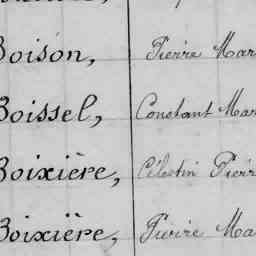 Boison, Pierre Mar
Boissel, Constant Mar
Boixière, Célestin Pierr
Boixière, Pierre Ma